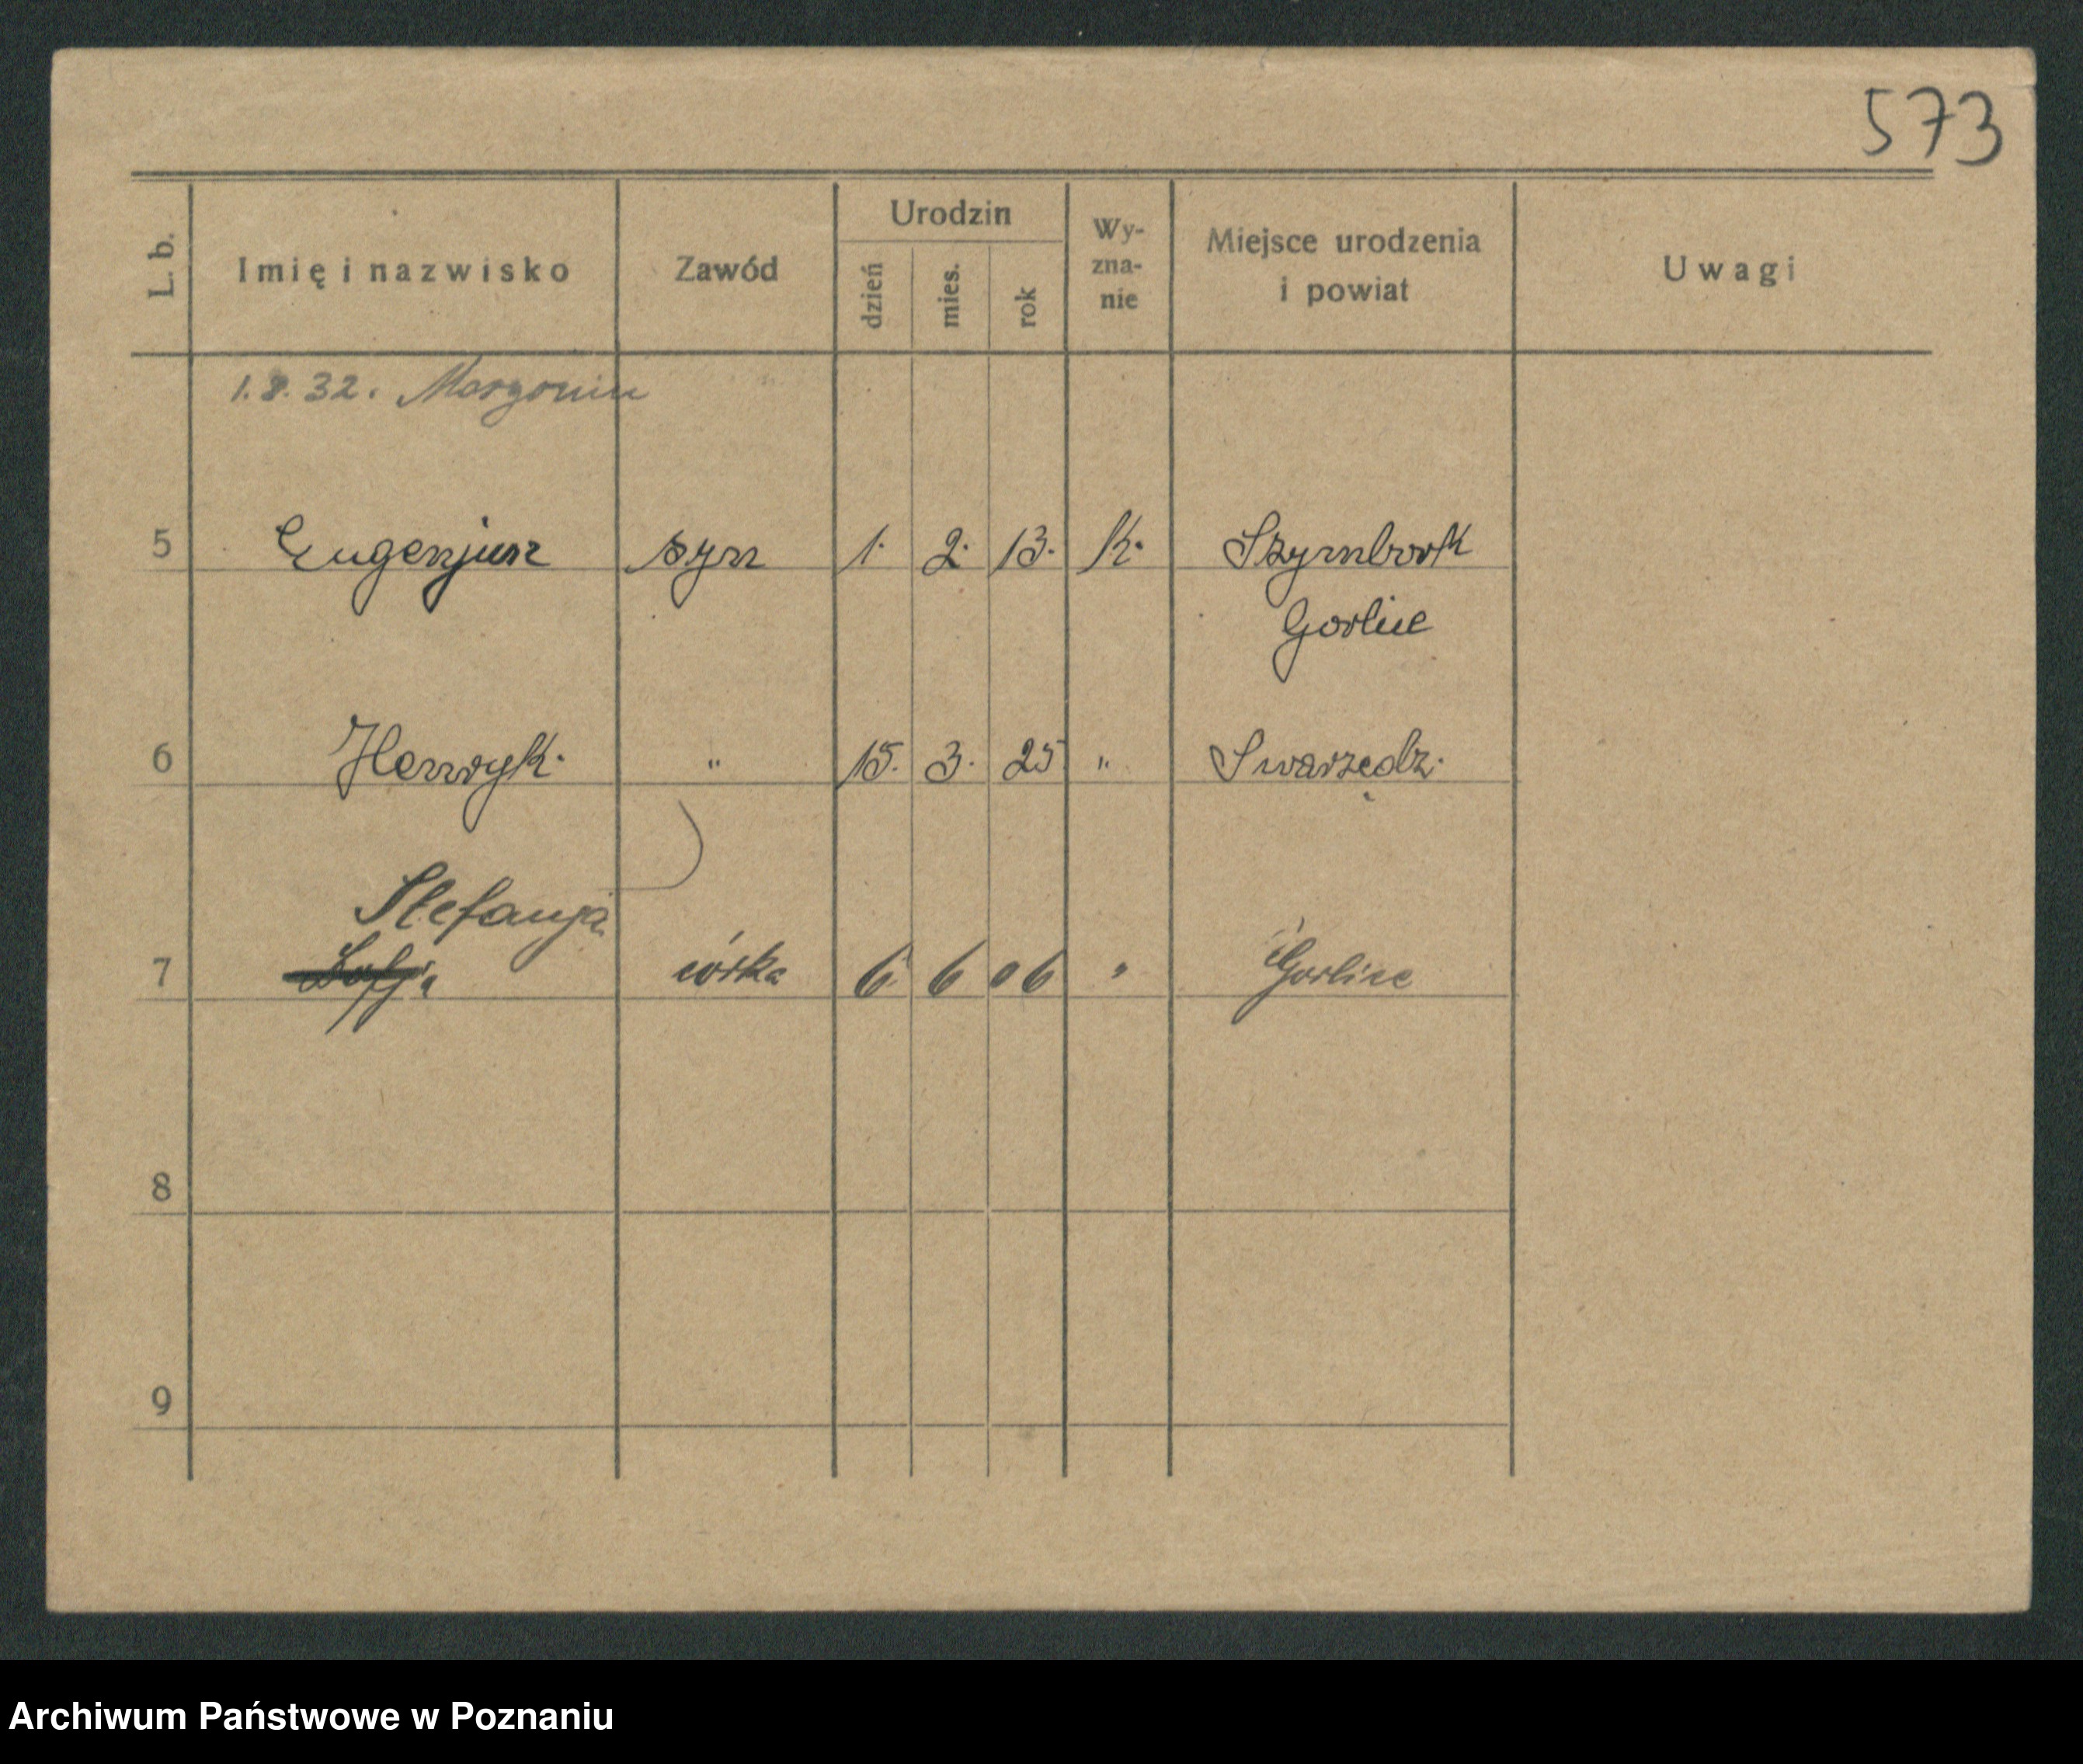 573
L. b. Imię i nazwisko Zawód Urodzin Wy- Miejsce urodzenia Uwagi
dzień mies. rok zna- i powiat
nie
1.8.32. Margonin
5 Eugenjusz syn 1. 2. 13. K. Szymbark
Gorlice
6 Henryk. " 15. 3. 25 " Swarzędz.
Stefanja
7 Zofja córka 6 6 06 " Gorlice
8
9
Archiwum Państwowe w Poznaniu